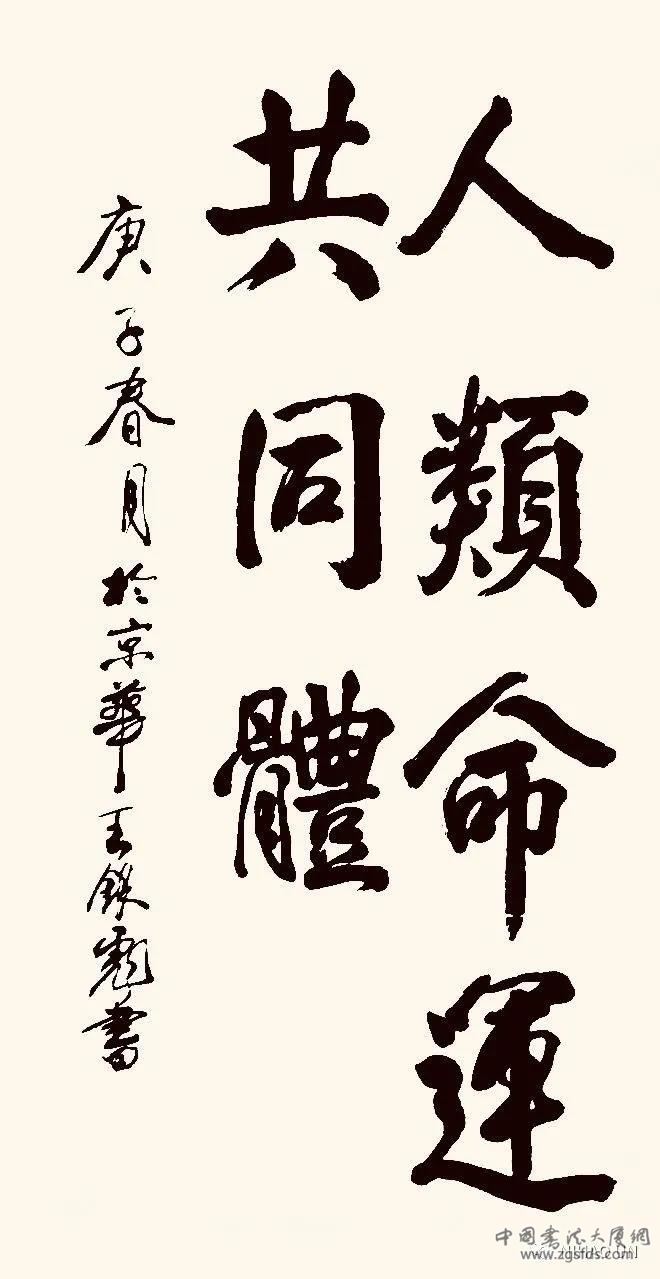 人類命運
共同體
庚子春月於京華王鐵彪書
中国書法大厦網
www.zgsfds.com